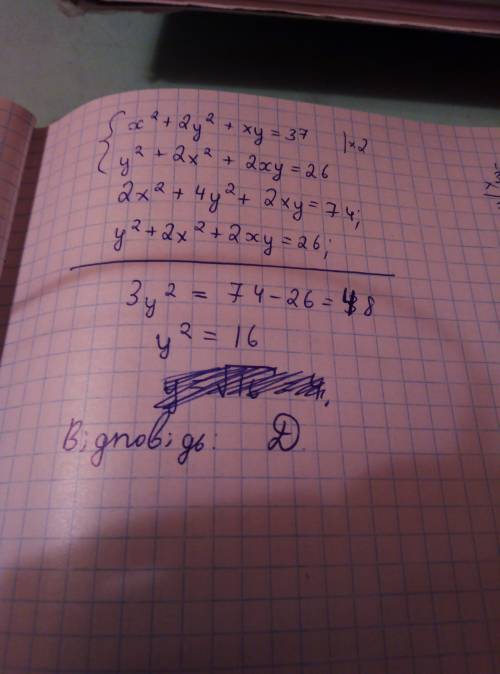 x² + 2y² + xy = 37 |×2
y² + 2x² + 2xy = 26
2x² + 4y² + 2xy = 74;
y² + 2x² + 2xy = 26;
3y² = 74 - 26 = 48
y² = 16
Відповідь: Д